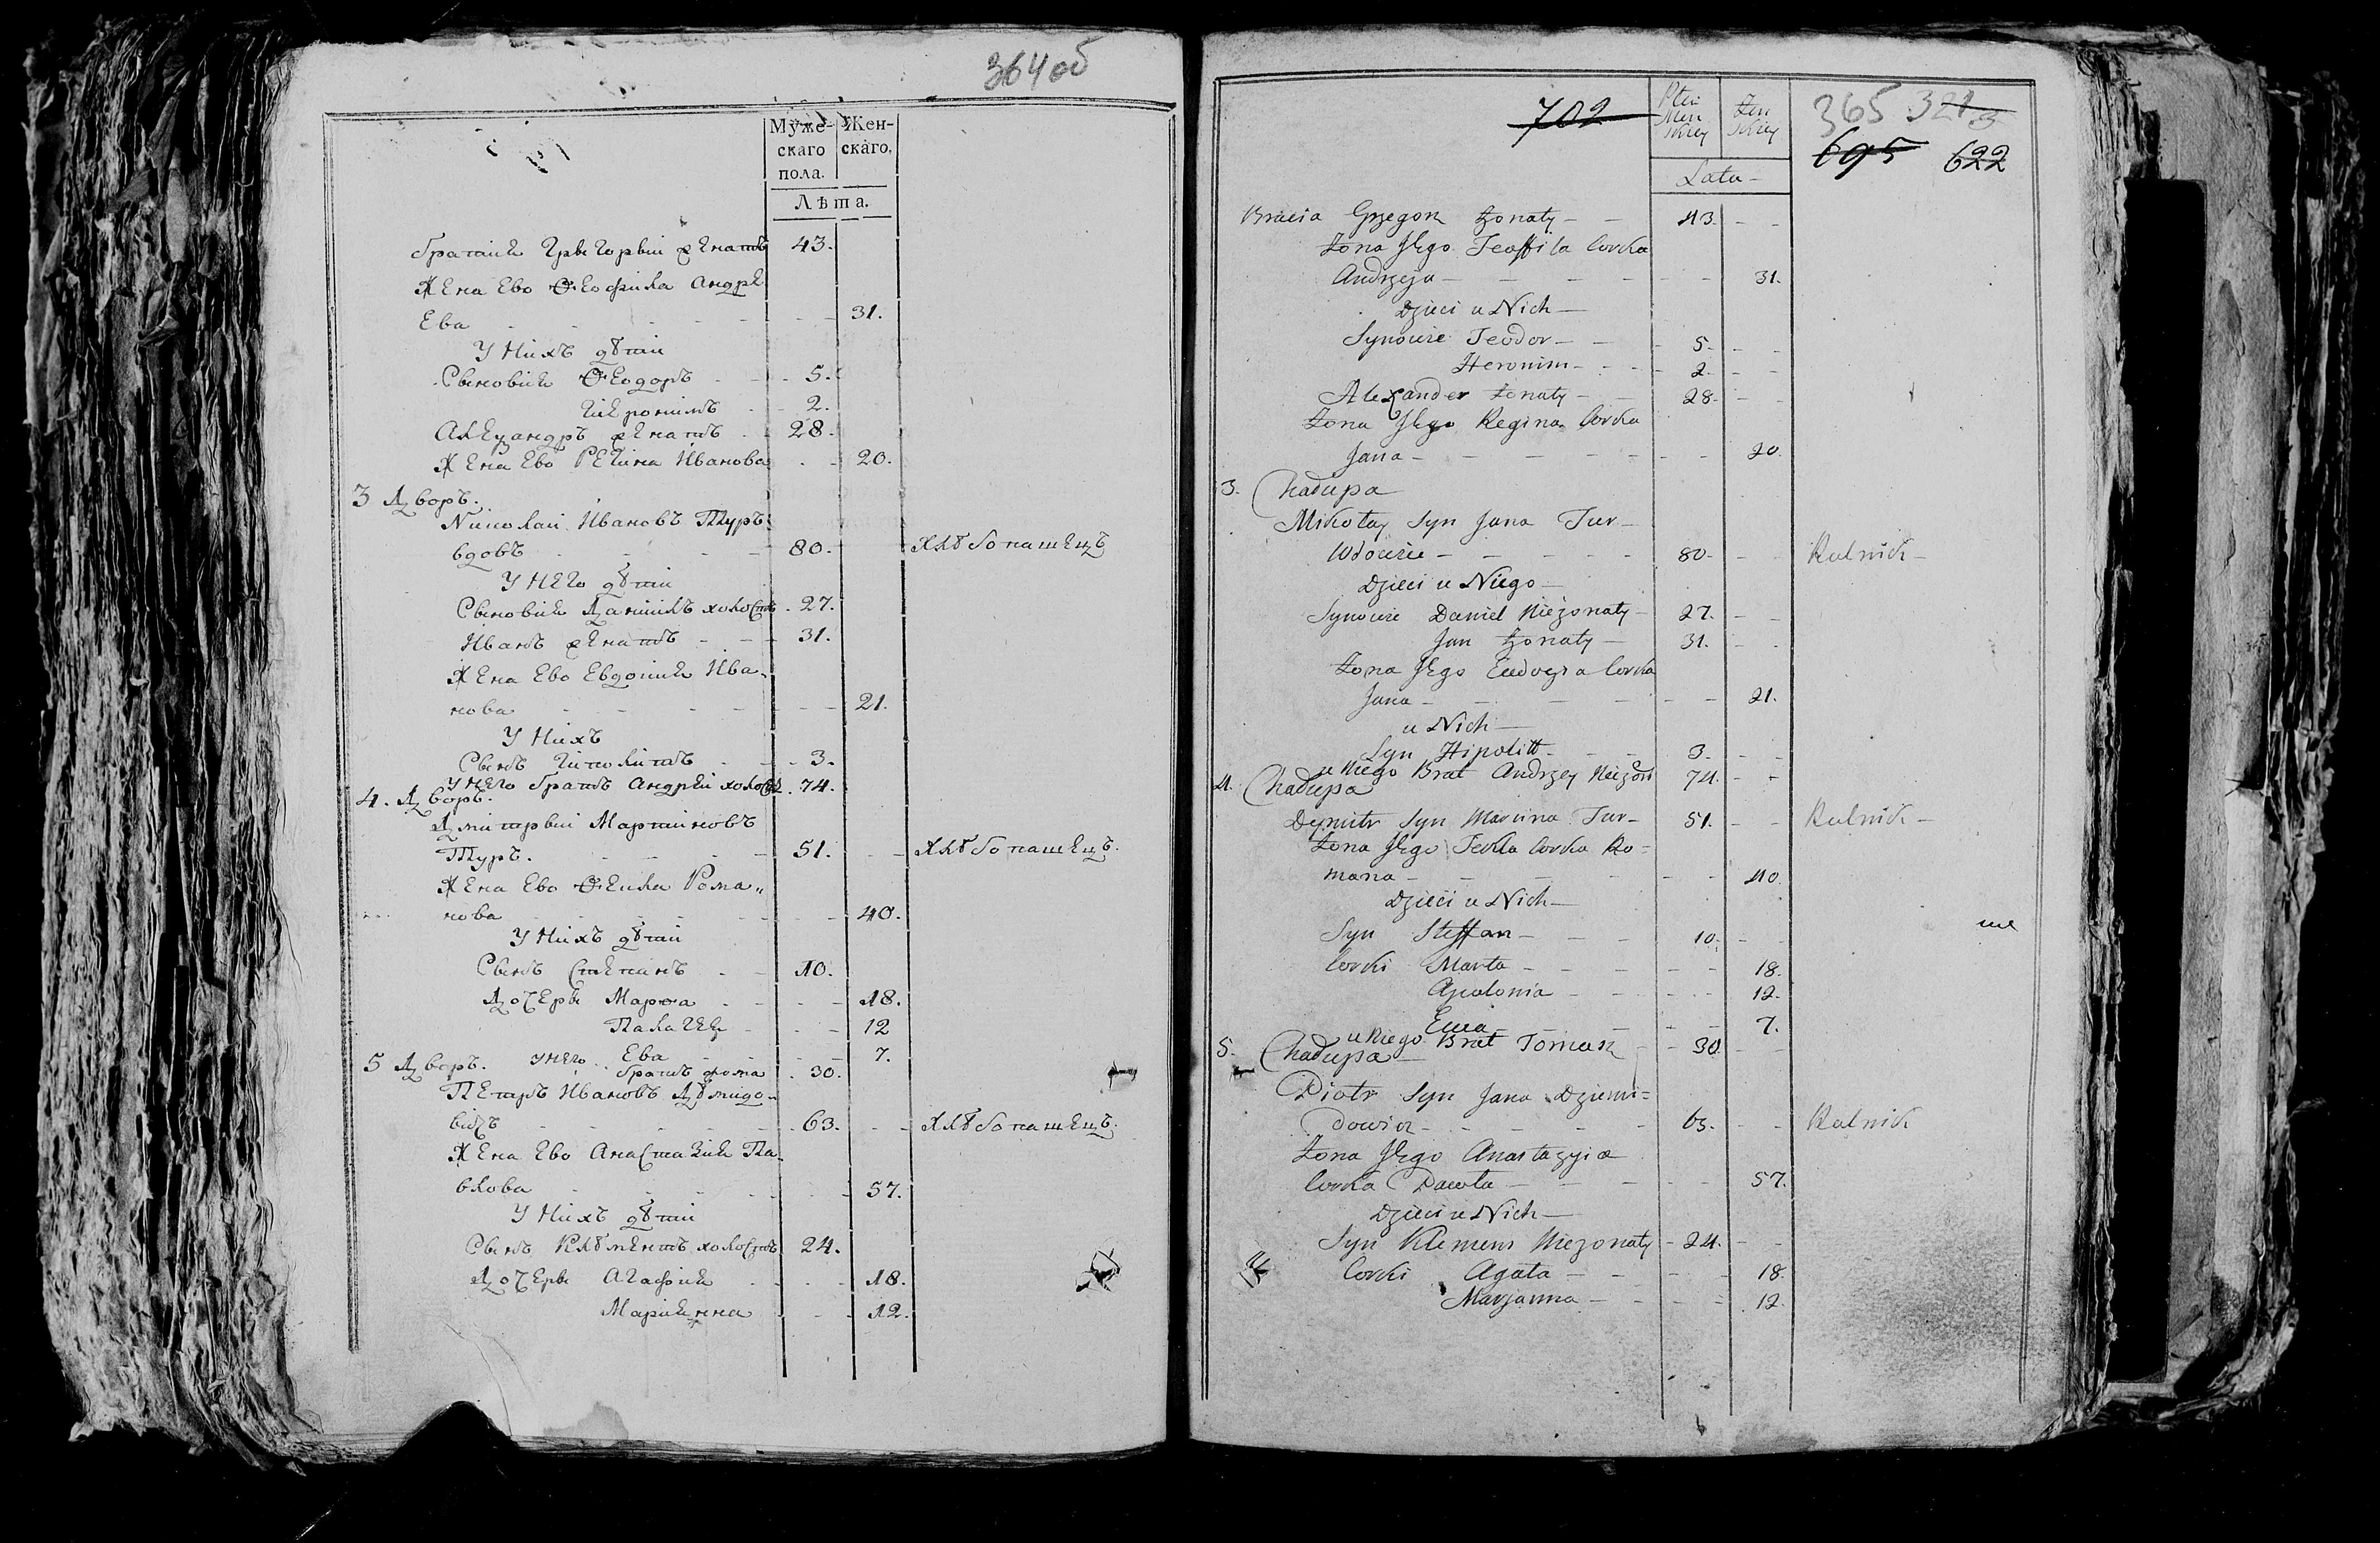 364об
Муже-
скаго
пола.
Жен-
скаго.
Лѣта.
братья Григорый женатъ 43.
Жена Ево Ѳеофила Андре
Ева 31.
У Нихъ дѣти
Сыновья Ѳеодоръ 5.
Иеронимъ 2.
Алецандръ женатъ 28.
Жена Ево Регина Иванова 20.
3 Дворъ.
Николай Ивановъ Туръ
вдовъ 80. Хлѣбопашецъ
У Него дѣти
Сыновья Даниилъ холостъ 27.
Иванъ женатъ 31.
Жена Ево Евдокия Ива-
нова 21.
У Нихъ
Сынъ Иполитъ 3.
У Него братъ Андрей холостъ 74.
4. Дворъ.
Дмитрый Мартиновъ
Туръ. 51. Хлѣбопашецъ.
Жена Ево Ѳекла Рома„
нова 40.
У Нихъ дѣти
Сынъ Степанъ 10.
Дочеры Марѳа 18.
Палагея 12
Ева 7.
5 Дворъ. У Него братъ Фома 30.
Петръ Ивановъ Дѣмидо-
вичъ 63. Хлѣбопашецъ.
Жена Ево Анастазия Па-
влова 57.
У Нихъ дѣти
Сынъ Клѣментъ холостъ 24.
Дочеры Агафия 18.
Марианна 12.
702
Płci
Męn
skiey
Żeń
skiey
365 321
695 622
Lata
Bracia Grzegorz żonaty 43.
Żona Jego Teoffila Corka
Andrzeja 31.
Dzieci u Nich
Synowie Teodor 5.
Heronim 2.
Alexander żonaty 28.
Żona Jego Regina Corka
Jana 20.
3. Chałupa
Mikołay Syn Jana Tur
Wdowiec 80. Rolnik
Dzieci u Niego
Synowie Daniel Nieżonaty 27.
Jan żonaty 31.
Żona Jego Eudocyia Corka
Jana 21.
u Nich
Syn Hipolitt 3.
u Niego Brat Andrzey Nieżon 74.
4. Chałupa
Dymitr Syn Marcina Tur 51. Rolnik
Żona Jego Tekla Corka Ro=
mana 40.
Dzieci u Nich
Syn Steffan 10.
Corki Marta 18.
Apolonia 12.
Ewa 7.
u Niego Brat Tomasz 30
5. Chałupa
Piotr Syn Jana Dziemi=
dowicz 63. Rolnik
Żona Jego Anastazyia
Corka Pawła 57.
Dzieci u Nich
Syn Klemens Nieżonaty 24.
Corki Agata 18.
Marjanna 12.